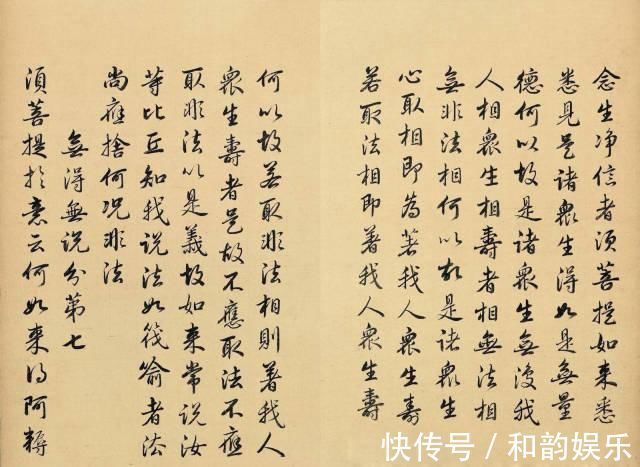 念生净信者須菩提如来悉
悉見是諸眾生得如是無量
德何以故是諸眾生無復我
人相眾生相壽者相無法相
無非法相何以故是諸眾生
心取相即為著我人眾生壽
若取法相即著我人眾生壽
何以故若取非法相則著我人
眾生壽者是故不應取法不應
取非法以是義故如来常說汝
等比丘知我說法如筏喻者法
尚應捨何况非法
無得無說分第七
須菩提於意云何如来得阿耨
快传号 / 和韵娱乐